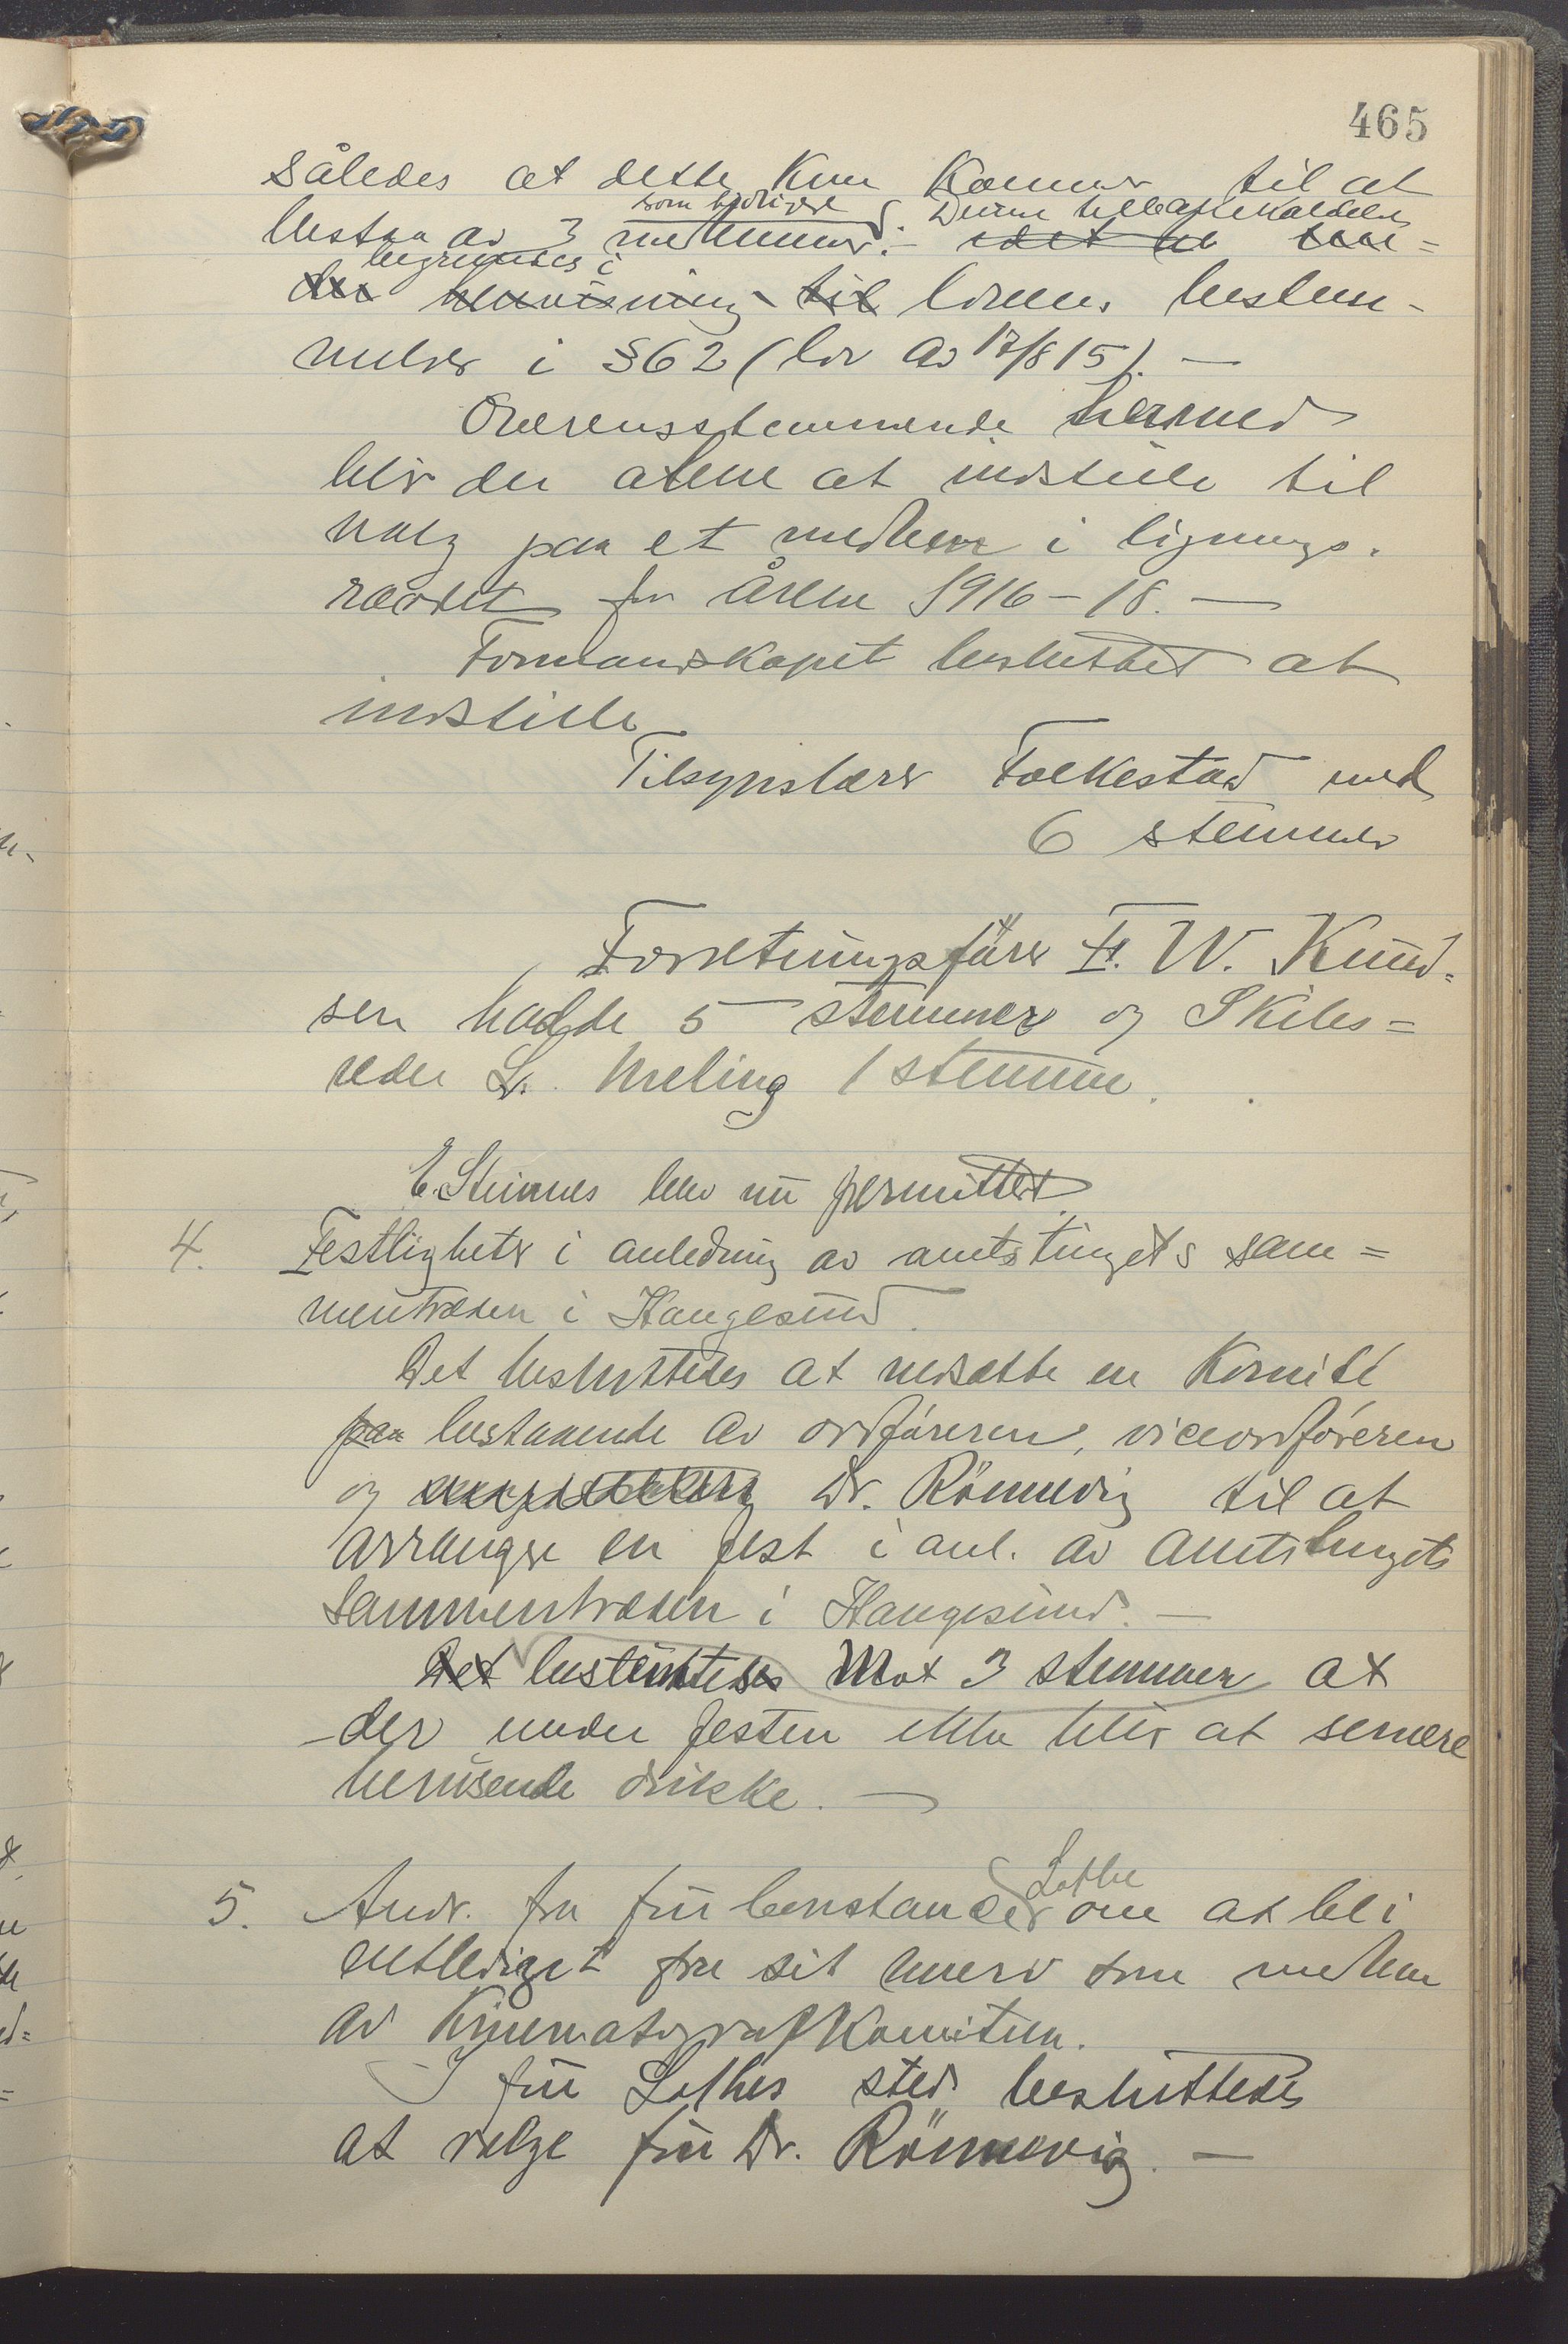 465
således at dette kun kommer til at
som tidligere Denne tilbakekaldelse
bestaa av 3 medlemmer. - idet at
begrundes i
der henvisning til lovens bestem-
melser i §62 (lov av 17/8 15). -
Overensstemmende hermed
blir der alene at indstille til
valg paa et medlem i lignings-
raadet for årene 1916-18. -
Formandskapet besluttet at
indstille
Tilsynslærer Folkestad med
6 stemmer
Forretningsfører Fr. W. Knud=
sen hadde 5 stemmer og Skibs=
reder L. Meling 1 stemme.
E. Steinnes blev nu permittert.
4. Festligheter i anledning av amtstingets sam=
mentræden i Haugesund.
Det besluttedes at nedsætte en Komité
paa bestaaende av ordføreren, viceordføreren
og Dr. Rönnevig til at
arrangere en fest i anl. av amtstingets
sammentræden i Haugesund. -
Det besluttedes mot 3 stemmer at
der under festen ikke blir at servere
berusende drikke. -
5. Andr. fra fru Constance Lothe om at bli
entlediget fra sit hverv som medlem
av Kinematografkomiteen.
I fru Lothes sted besluttedes
at velge fru Dr. Rönnevig. -